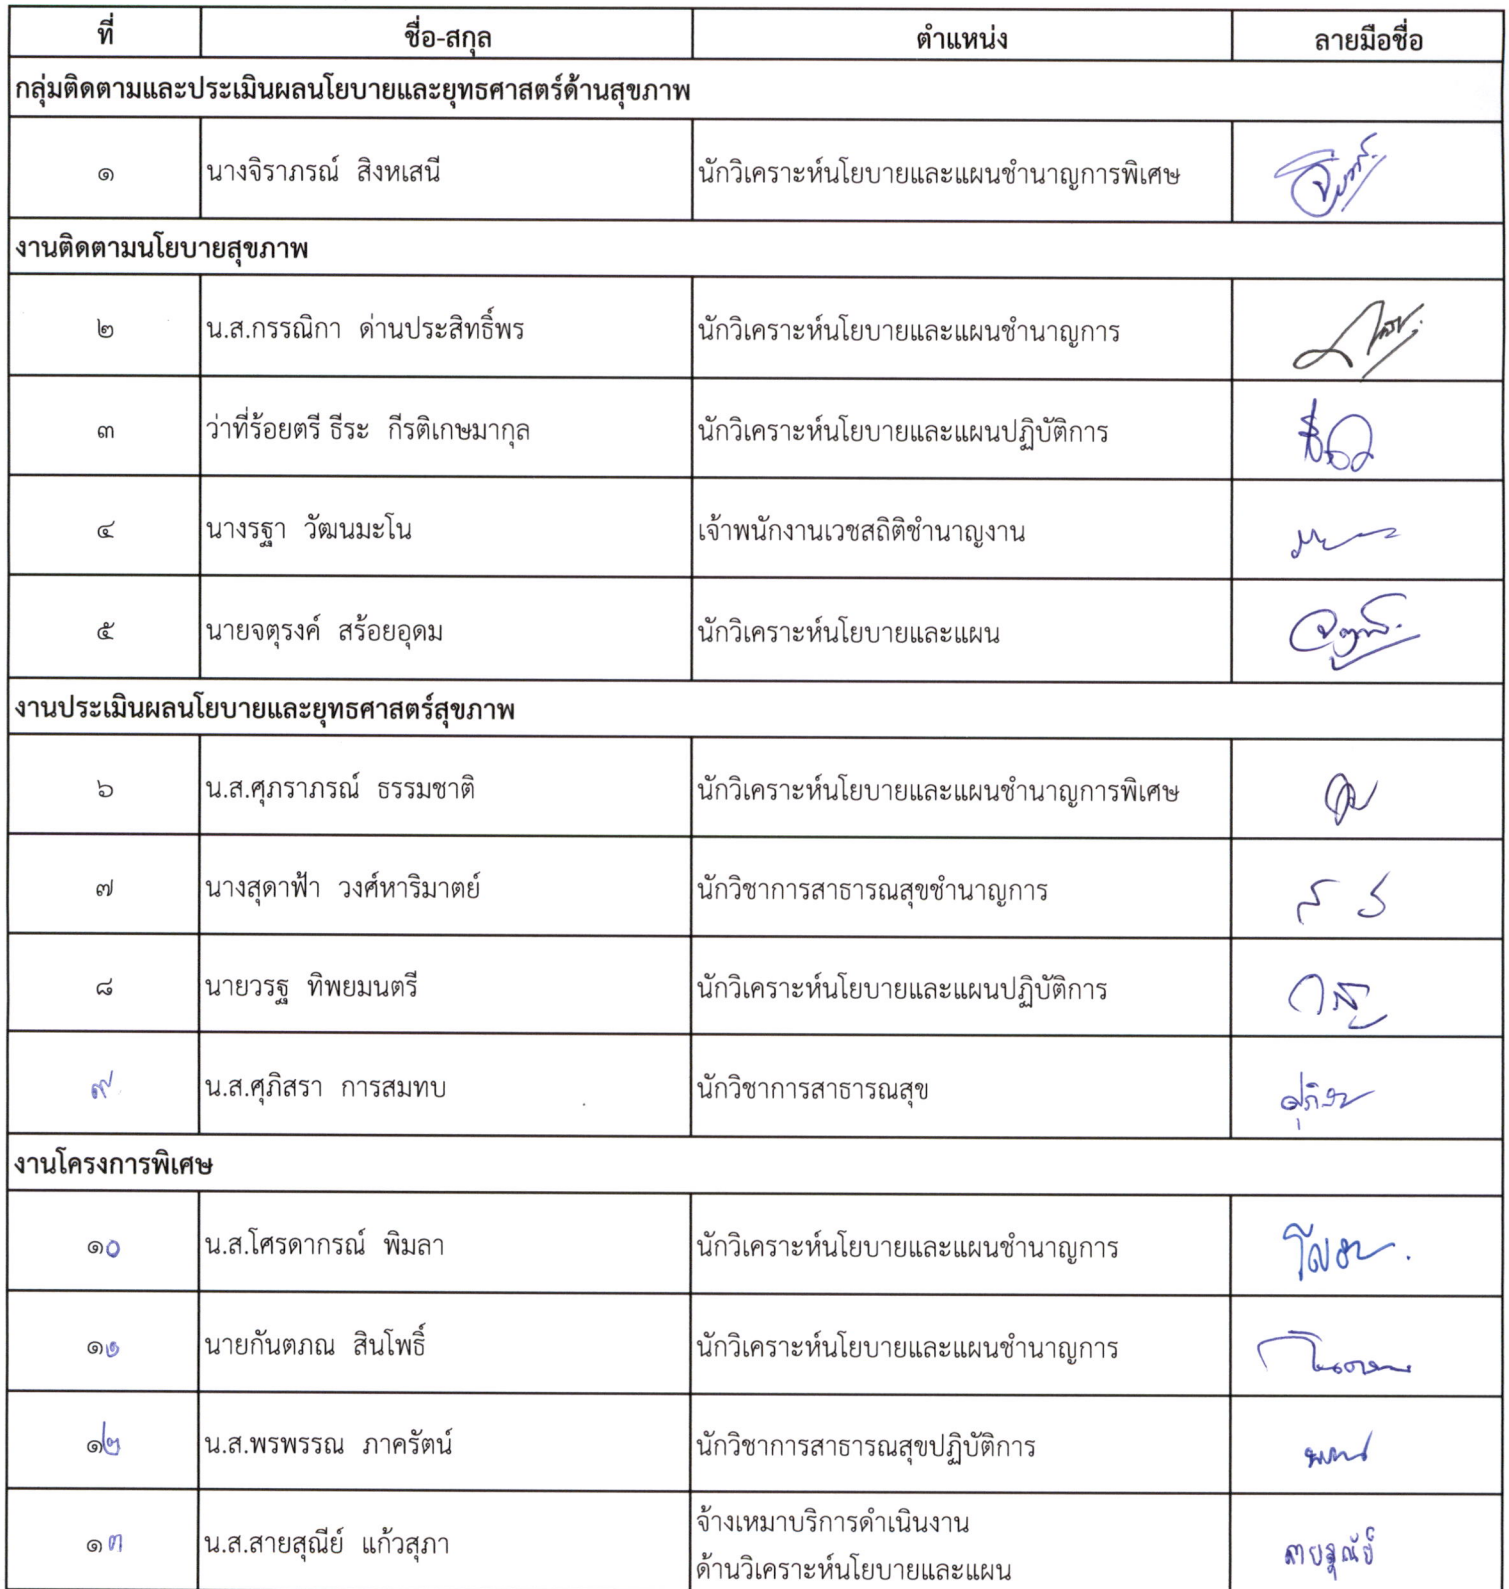 ที่ ชื่อ-สกุล ตำแหน่ง ลายมือชื่อ
กลุ่มติดตามและประเมินผลนโยบายและยุทธศาสตร์ด้านสุขภาพ
๑ นางจิราภรณ์ สิงหเสนี นักวิเคราะห์นโยบายและแผนชำนาญการพิเศษ
งานติดตามนโยบายสุขภาพ
๒ น.ส.กรรณิกา ด่านประสิทธิ์พร นักวิเคราะห์นโยบายและแผนชำนาญการ
๓ ว่าที่ร้อยตรี ธีระ กีรติเกษมากุล นักวิเคราะห์นโยบายและแผนปฏิบัติการ
๔ นางรฐา วัฒนมะโน เจ้าพนักงานเวชสถิติชำนาญงาน
๕ นายจตุรงค์ สร้อยอุดม นักวิเคราะห์นโยบายและแผน
งานประเมินผลนโยบายและยุทธศาสตร์สุขภาพ
๖ น.ส.ศุภราภรณ์ ธรรมชาติ นักวิเคราะห์นโยบายและแผนชำนาญการพิเศษ
๗ นางสุดาฟ้า วงศ์หาริมาตย์ นักวิชาการสาธารณสุขชำนาญการ
๘ นายวรฐ ทิพยมนตรี นักวิเคราะห์นโยบายและแผนปฏิบัติการ
๙ น.ส.ศุภิสรา การสมทบ นักวิชาการสาธารณสุข
งานโครงการพิเศษ
๑๐ น.ส.โศรดากรณ์ พิมลา นักวิเคราะห์นโยบายและแผนชำนาญการ
๑๑ นายกันตภณ สินโพธิ์ นักวิเคราะห์นโยบายและแผนชำนาญการ
๑๒ น.ส.พรพรรณ ภาครัตน์ นักวิชาการสาธารณสุขปฏิบัติการ
๑๓ น.ส.สายสุณีย์ แก้วสุภา จ้างเหมาบริการดำเนินงาน
ด้านวิเคราะห์นโยบายและแผน
สายสุณีย์